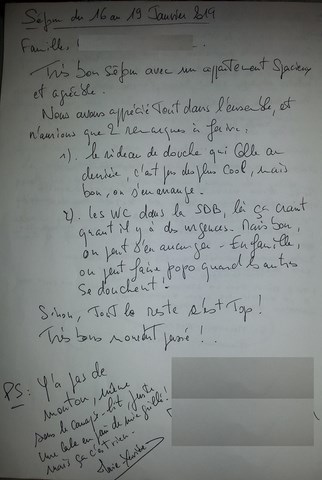 Séjour du 16 au 19 Janvier 2019
Famille,
Très bon séjour avec un appartement Spacieux
et agréable.
Nous avons apprécié Tout dans l'ensemble, et
n'aurions que 2 remarques à faire :
1). le rideau de douche qui colle au
derrière, c'est pas des plus cool, mais
bon, on s'en arrange.
2). les WC dans la SDB, là ça craint
quant il y a des urgences. Mais bon,
on peut s'en arranger - En famille,
on peut faire popo quand les autres
se douchent !
Sinon, Tout le reste c'est Top !
Très bons moment passé ! .
PS: Y'a pas de
mouton, même
sous le canapé-lit, juste
une balle en
mais ça c'est rien.